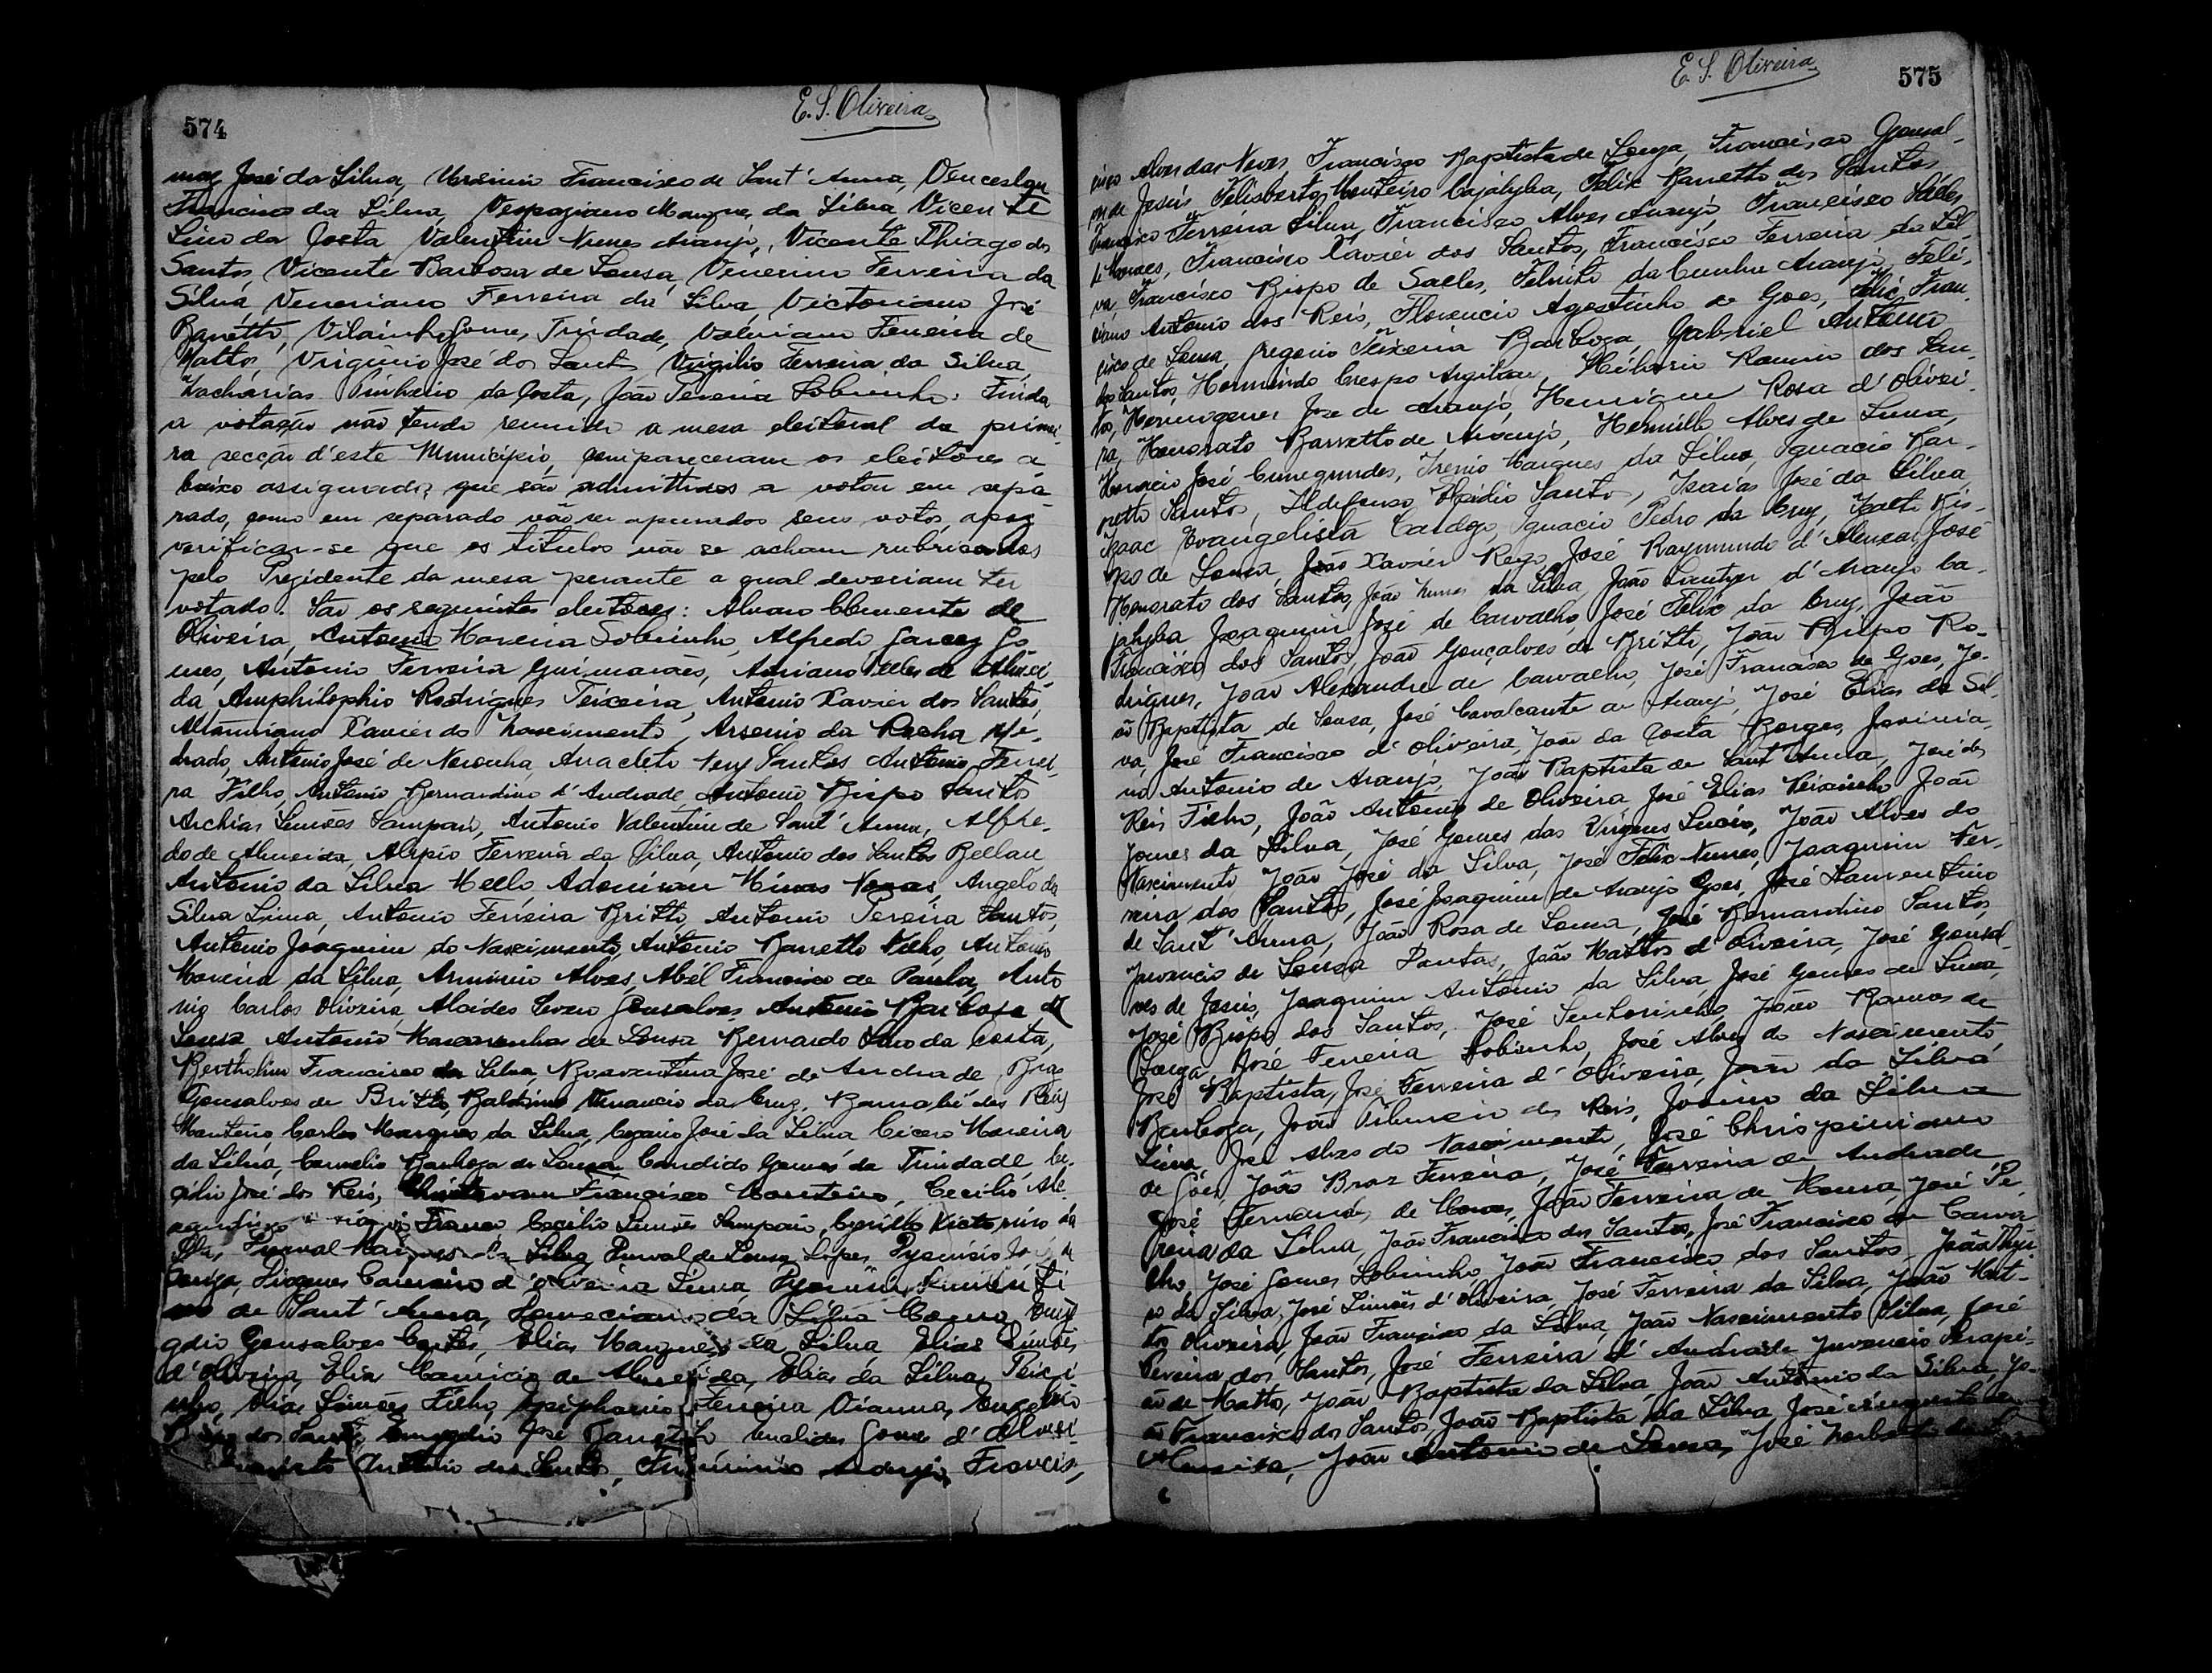 E. S. Oliveira
574
José da Silva, Francisco de Sant' Anna, Venceslau
Francisco da Silva, Vespaziano Marques da Silva, Vicente
Lino da Costa Valentim Nunes Araujo, Vicente Thiago dos
Santos, Vicente Barbosa de Sousa, Venerino Ferreira da
Silva, Veneriano Ferreira da Silva, Victoriano José
Barretto, Gomes Trindade, Valeriano Ferreira de
Mattos, Virginio José dos Santos Virgilio Ferreira da Silva
Zacharias Pinheiro da Costa, João Pereira Sobrinho. Finda
a votação não tendo reunido a mesa eleitoral da primei-
ra secção d'este Municipio, compareceram os eleitores a
baixo assignados que são admittidos a votar em sepa-
rado, como em separado vão ser apurados seus votos, apoz
verificar-se que os titulos não se acham rubricados
pelo Prezidente da mesa perante a qual deveriam ter
votado. São os seguintes eleitores: Alvaro Clemente de
Oliveira, Antonio Moreira Sobrinho, Alfredo Garcez Go-
mes, Antonio Ferreira Guimarães, Adriano Telles de Almei-
da, Amphilophio Rodrigues Teixeira, Antonio Xavier dos Santos,
Altamirano Xavier do Nascimento, Arsenio da Rocha Me-
drado, Antonio José de Noronha, Anacleto Nery Santos Antonio Ferrei-
ra Filho, Antonio Bernardino d'Andrade, Antonio Bispo Santos
Archias Simões Sampaio, Antonio Valentim de Sant' Anna, Alfre-
do de Almeida, Alipio Ferreira da Silva, Antonio dos Santos
Antonio da Silva Mello Adoniran Minas Novas, Angelo da
Silva Lima, Antonio Ferreira Britto, Antonio Pereira Santos,
Antonio Joaquim do Nascimento, Antonio Barretto Filho, Antonio
Moreira da Silva, Arminio Alves, Abél Francisco de Paula, Anto
nio Carlos Oliveira, Alcides Gonsalves Antonio Barbosa de
Sousa Antonio Mascarenhas de Sousa Bernardo Lino da Costa,
Bertholino Francisco da Silva, Boaventura José de Andrade Braz
Gonsalves de Britto, Balbino Venancio da Cruz, Barnabé dos Reis
Monteiro, Carlos Marques da Silva, José da Silva Cicero Moreira
da Silva, Cornelio Barboza de Souza Candido Gomes da Trindade,
José dos Reis, Francisco Monteiro, Cecilio
Franco Cecilio Simões Sampaio, Cyrillo Victorino da
Silva, Durval Marques da Silva Durval de Sousa Lopes,
Diogenes Carneiro d'Oliveira Lima,
de Sant' Anna, da Silva
Gonsalves Elias Marques da Silva Elias Simões
d'Oliveira, Elias Mauricio de Almeida, Elias da Silva
Elias Simões Filho, Epiphanio Ferreira Vianna,
dos Santos José Barretto Euclides Gomes d'Olivei-
Antonio dos Santos, Araujo, Francis-
E. S. Oliveira
575
Alves das Neves, Francisco Baptista de Souza, Francisco Gonsal-
ves de Jesús Felisberto Monteiro Cajahyba, Felix Barretto dos Santos
Francisco Ferreira Silva, Francisco Alves Araujo, Francisco Salles
de Moraes, Francisco Xavier dos Santos, Francisco Ferreira da Sil-
va, Francisco Bispo de Salles, da Cunha Araujo, Feli-
ciano Antonio dos Reis, Florencio Agostinho de Goes, Felix Fran-
cisco de Sousa, Gregorio Teixeira Barboza, Gabriel Antonio
dos Santos, Hermindo Crespo Hilario Ramiro dos San-
tos, Hermogenes José de Araujo, Henrique Rosa d'Olivei-
ra, Honorato Barretto de Araujo, Hermillo Alves de Lima,
Horacio José Cunegundes, Irenio Marques da Silva, Ignacio Bar-
retto Santos, Ildefonso Santos, Isaías José da Silva
Izaac Evangelista Cardozo, Ignacio Pedro da Cruz, Bis-
po de Sousa, João Xavier Rego, José Raymundo d'Alencar José
Honorato dos Santos, João Nunes da Silva, João d'Araujo Ca-
jahyba Joaquim José de Carvalho, José Felix da Cruz, João
Francisco dos Santos, João Gonçalves de Britto, João Bispo Ro-
drigues, João Alexandre de Carvalho, José Francisco de Goes, Jo-
ão Baptista de Sousa, José Cavalcante de Araujo, José Elias da Sil-
va, José Francisco d'Oliveira, João da Costa Borges, Jovinia-
no Antonio de Araujo, João Baptista de Sant'Anna, José dos
Reis Filho, João Antonio de Oliveira José Elias Teixeira João
Gomes da Silva, José Gomes das Virgens Lucio, João Alves do
Nascimento João José da Silva, José Felix Nunes, Joaquim Fer-
reira dos Santos, José Joaquim de Araujo Goes, José Laurentino
de Sant' Anna, João Rosa de Sousa, José Bernardino Santos,
Juvencio de Souza Dantas, João Mattos d'Oliveira, José Gonsal-
ves de Jesús, Joaquim Antonio da Silva, José Gomes de Lima,
José Bispo dos Santos, José Senhorinho, João Ramos de
Souza, José Ferreira Sobrinho, José Alves do Nascimento,
José Baptista, José Ferreira d'Oliveira, João da Silva
Barboza, João Tiburcio dos Reis, Jovino da Silva
Lima, José Alves do Nascimento, José Chrispiniano
de Góes, João Braz Ferreira, José Ferreira de Andrade
José Fernandes de Moraes, João Ferreira de Moura, José Pe-
reira da Silva, João Francisco dos Santos, José Francisco de Carva-
lho, José Gomes Sobrinho, João Francisco dos Santos, João Thyr-
so da Silva, José Simões d'Oliveira, José Ferreira da Silva, João Mat-
tos Oliveira, João Francisco da Silva, João Nascimento Silva, José
Pereira dos Santos, José Ferreira d'Andrade Juvencio Serapi-
ão de Mattos, João Baptista da Silva, João Antonio da Silva, Jo-
ão Francisco dos Santos, João Baptista da Silva, José Augusto de
João Antonio de Sousa, José Norberto da